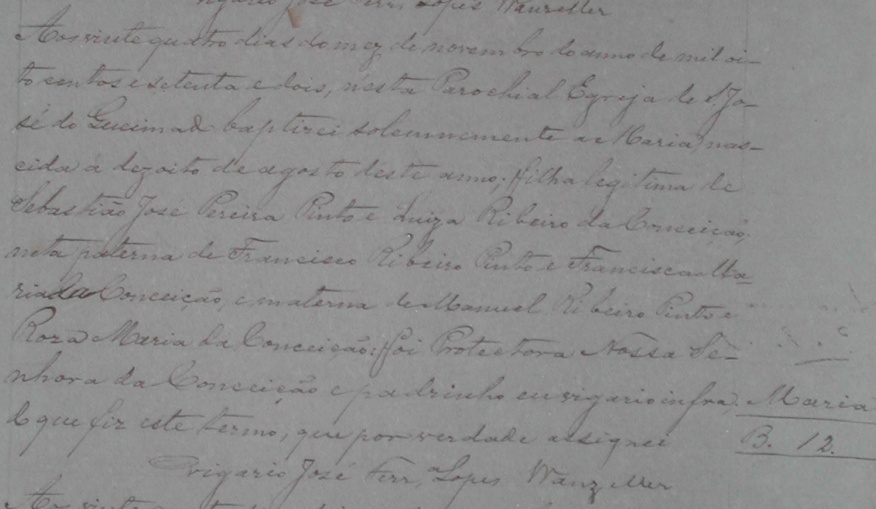 Vigario José Ferrª Lopes Wanzeller
Aos vinte quatro dias do mez de novembro do anno de mil oi-
to centos e setenta e dois, nesta Parochial Egreja de S. Jo-
sé do Gueimado baptizei solemnemente a Maria, nas-
cida á dezoito de agosto deste anno; filha legitima de
Sebastião José Pereira Pinto e Luiza Ribeiro da Conceição;
neta paterna de Francisco Ribeiro Pinto e Francisca Ma-
ria da Conceição, e materna de Manuel Ribeiro Pinto e
Roza Maria da Conceição: foi Protectora Nossa Se-
nhora da Conceição e padrinho eu vigario infra,
do que fiz este termo, que por verdade assignei
Maria
B. 12.
O vigario José Ferrª Lopes Wanzeller
Aos vinte